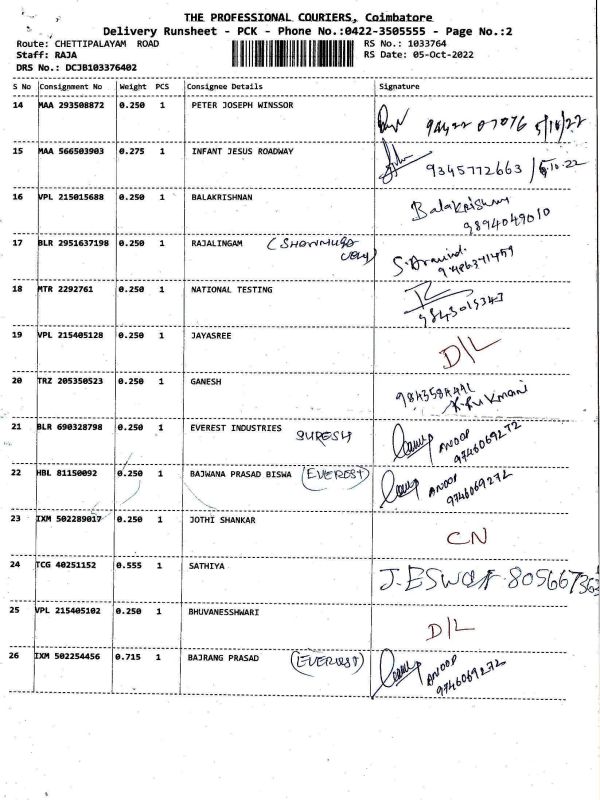 THE PROFESSIONAL COURIERS, Coimbatore
Delivery Runsheet - PCK - Phone No.:0422-3505555 - Page No.:2
Route: CHETTIPALAYAM ROAD RS No.: 1033764
Staff: RAJA RS Date: 05-Oct-2022
DRS No.: DCJB103376402
S No Consignment No Weight PCS Consignee Details Signature
14 MAA 293508872 0.250 1 PETER JOSEPH WINSSOR 94422 07076 5/10/22
15 MAA 566503903 0.275 1 INFANT JESUS ROADWAY 9345772663 / 5.10.22
16 VPL 215015688 0.250 1 BALAKRISHNAN Balakrishnan
9894049010
17 BLR 2951637198 0.250 1 RAJALINGAM (SHANMUGA S. Aravind
18 MTR 2292761 0.250 1 NATIONAL TESTING 9843019343
19 VPL 215405128 0.250 1 JAYASREE D/L
20 TRZ 205350523 0.250 1 GANESH
21 BLR 690328798 0.250 1 EVEREST INDUSTRIES SURESH ANOOP
9746069272
22 HBL 81150092 0.250 1 BAJWANA PRASAD BISWA (EVEREST) ANOOP
9746069272
23 IXM 502289017 0.250 1 JOTHI SHANKAR CN
24 TCG 40251152 0.555 1 SATHIYA J. ESWAR 805667363
25 VPL 215405102 0.250 1 BHUVANESSHWARI D/L
26 IXM 502254456 0.715 1 BAJRANG PRASAD (EVEREST) ANOOP
9746069272